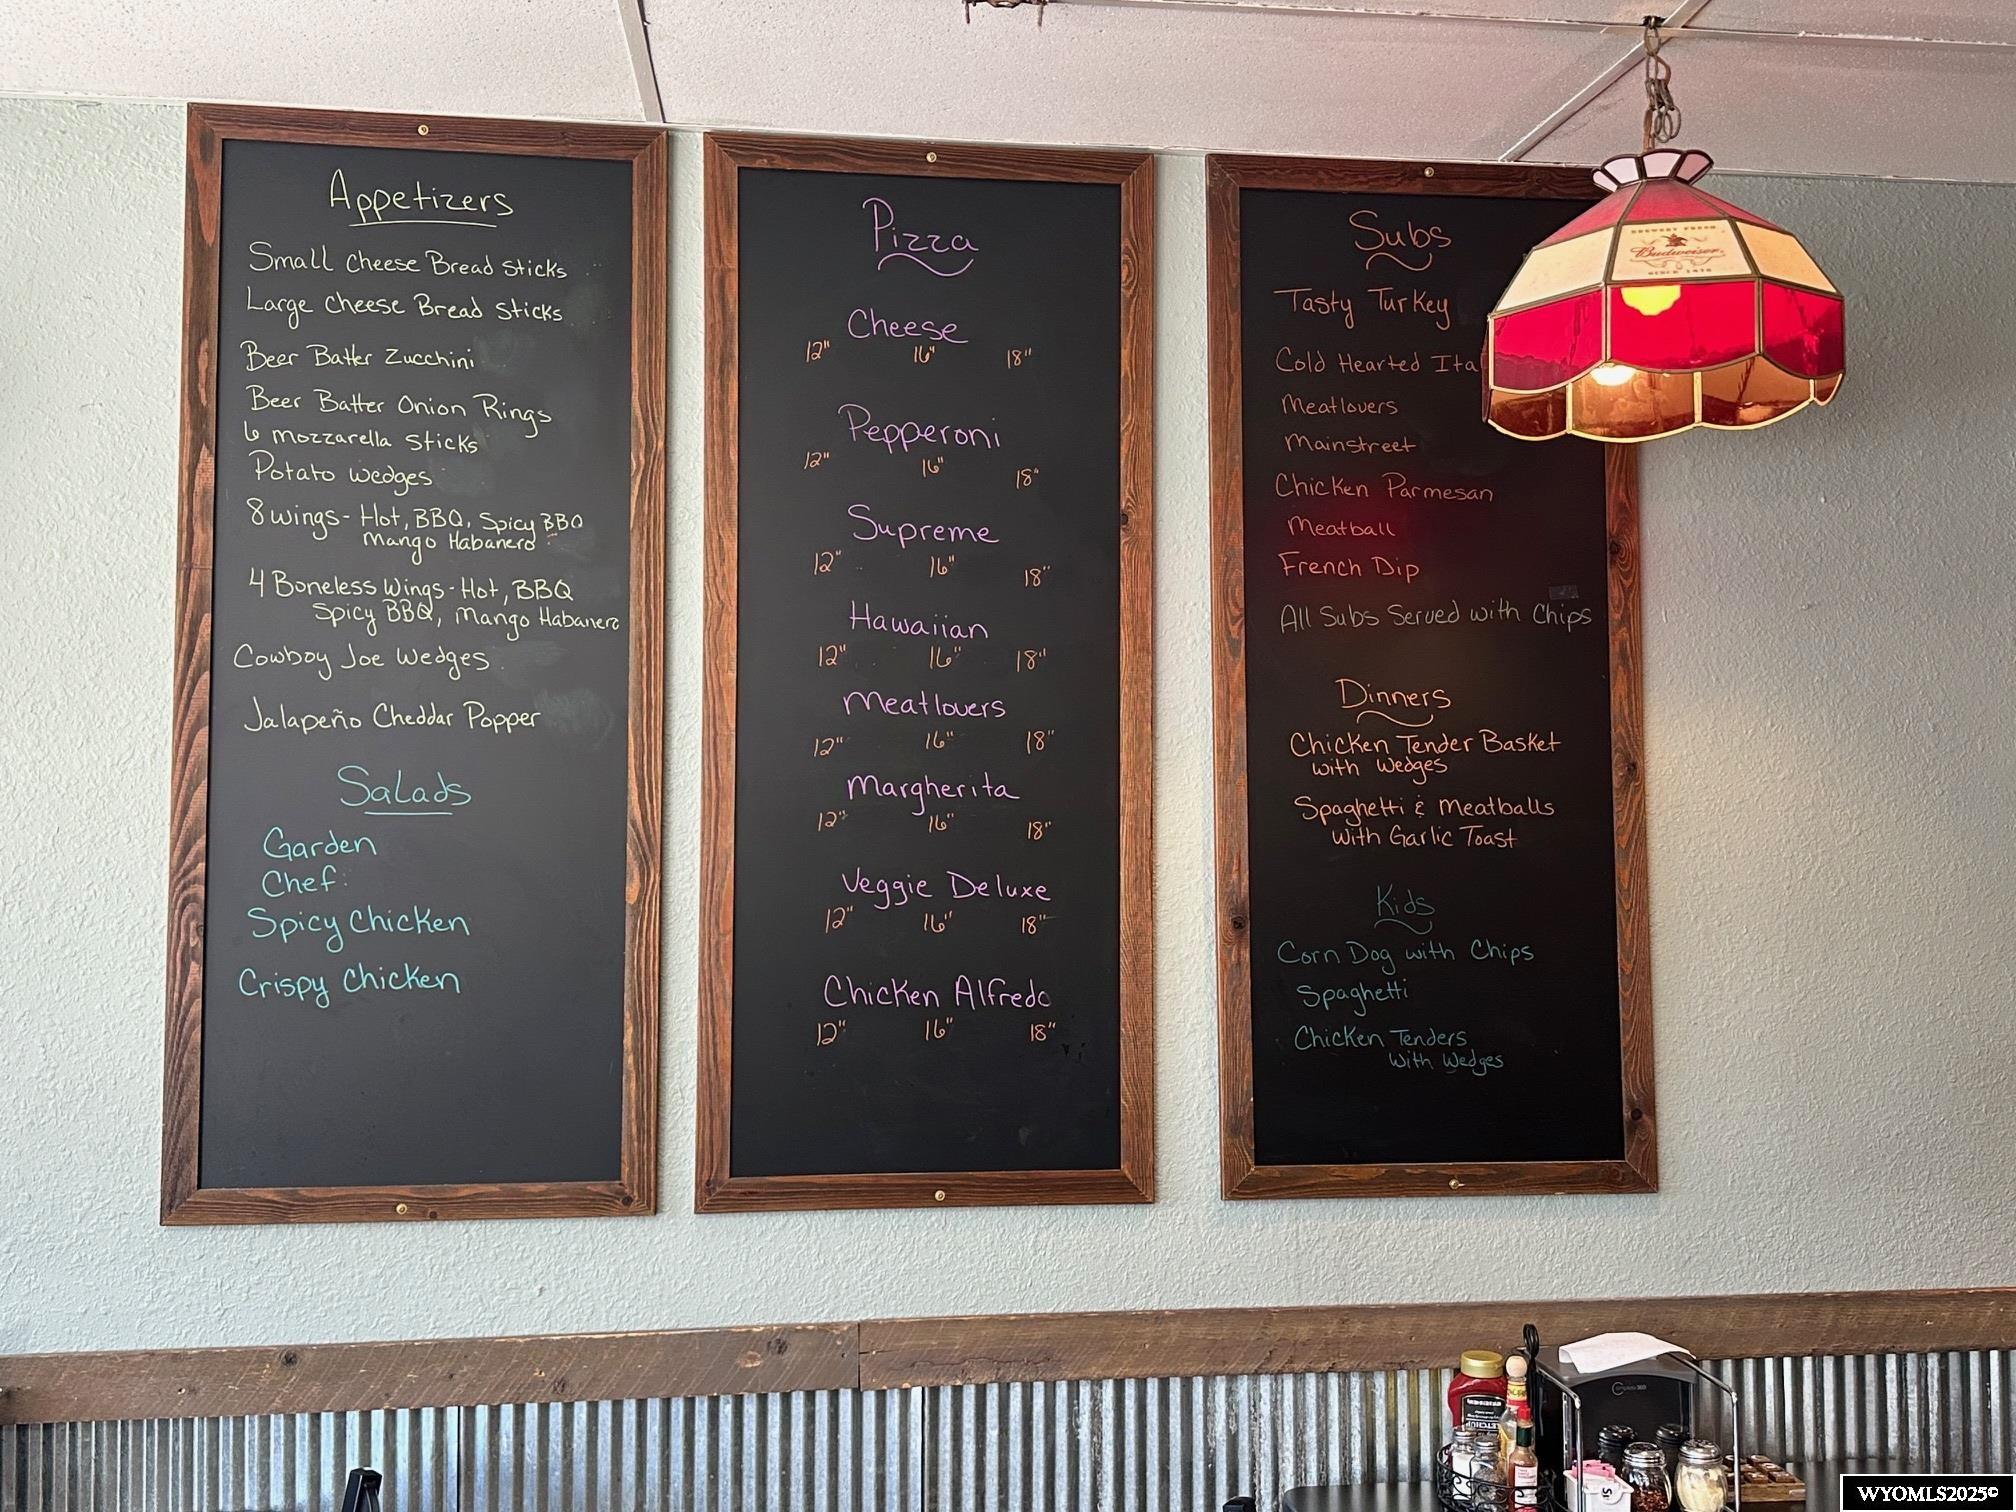 Appetizers
Small Cheese Bread Sticks
Large Cheese Bread Sticks
Beer Batter Zucchini
Beer Batter Onion Rings
6 mozzarella Sticks
Potato Wedges
8 wings - Hot, BBQ, Spicy BBQ
Mango Habanero
4 Boneless Wings - Hot, BBQ
Spicy BBQ, Mango Habanero
Cowboy Joe Wedges
Jalapeño Cheddar Popper
Salads
Garden
Chef
Spicy Chicken
Crispy Chicken
Pizza
Cheese
12" 16" 18"
Pepperoni
12" 16" 18"
Supreme
12" 16" 18"
Hawaiian
12" 16" 18"
Meatlovers
12" 16" 18"
Margherita
12" 16" 18"
Veggie Deluxe
12" 16" 18"
Chicken Alfredo
12" 16" 18"
Subs
Tasty Turkey
Cold Hearted Ita
Meatlovers
Mainstreet
Chicken Parmesan
Meatball
French Dip
All Subs Served with Chips
Dinners
Chicken Tender Basket
with Wedges
Spaghetti & Meatballs
with Garlic Toast
Kids
Corn Dog with Chips
Spaghetti
Chicken Tenders
with Wedges
Budweiser
SINCE 1876
WYOMLS2025©